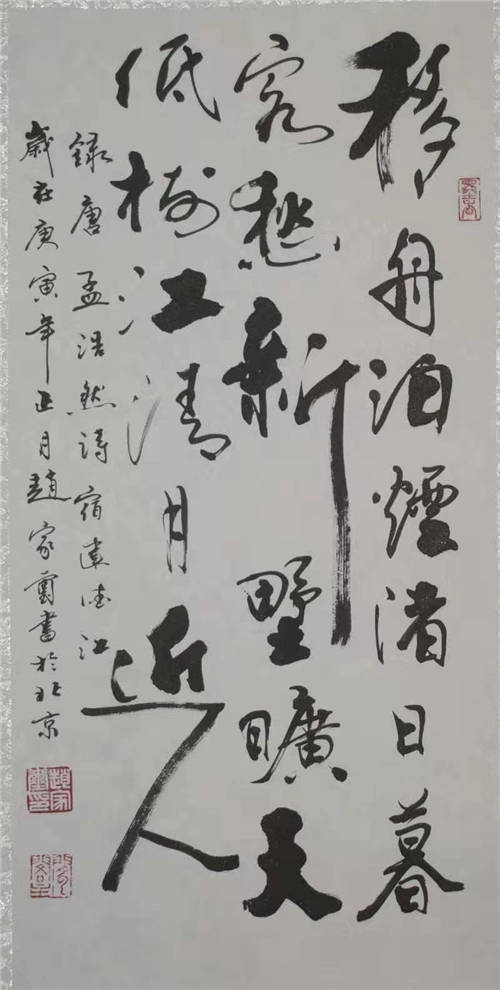 移舟泊煙渚日暮
客愁新野曠天
低樹江清月近人
錄唐孟浩然詩宿建德江
歲在庚寅年正月趙家書於北京